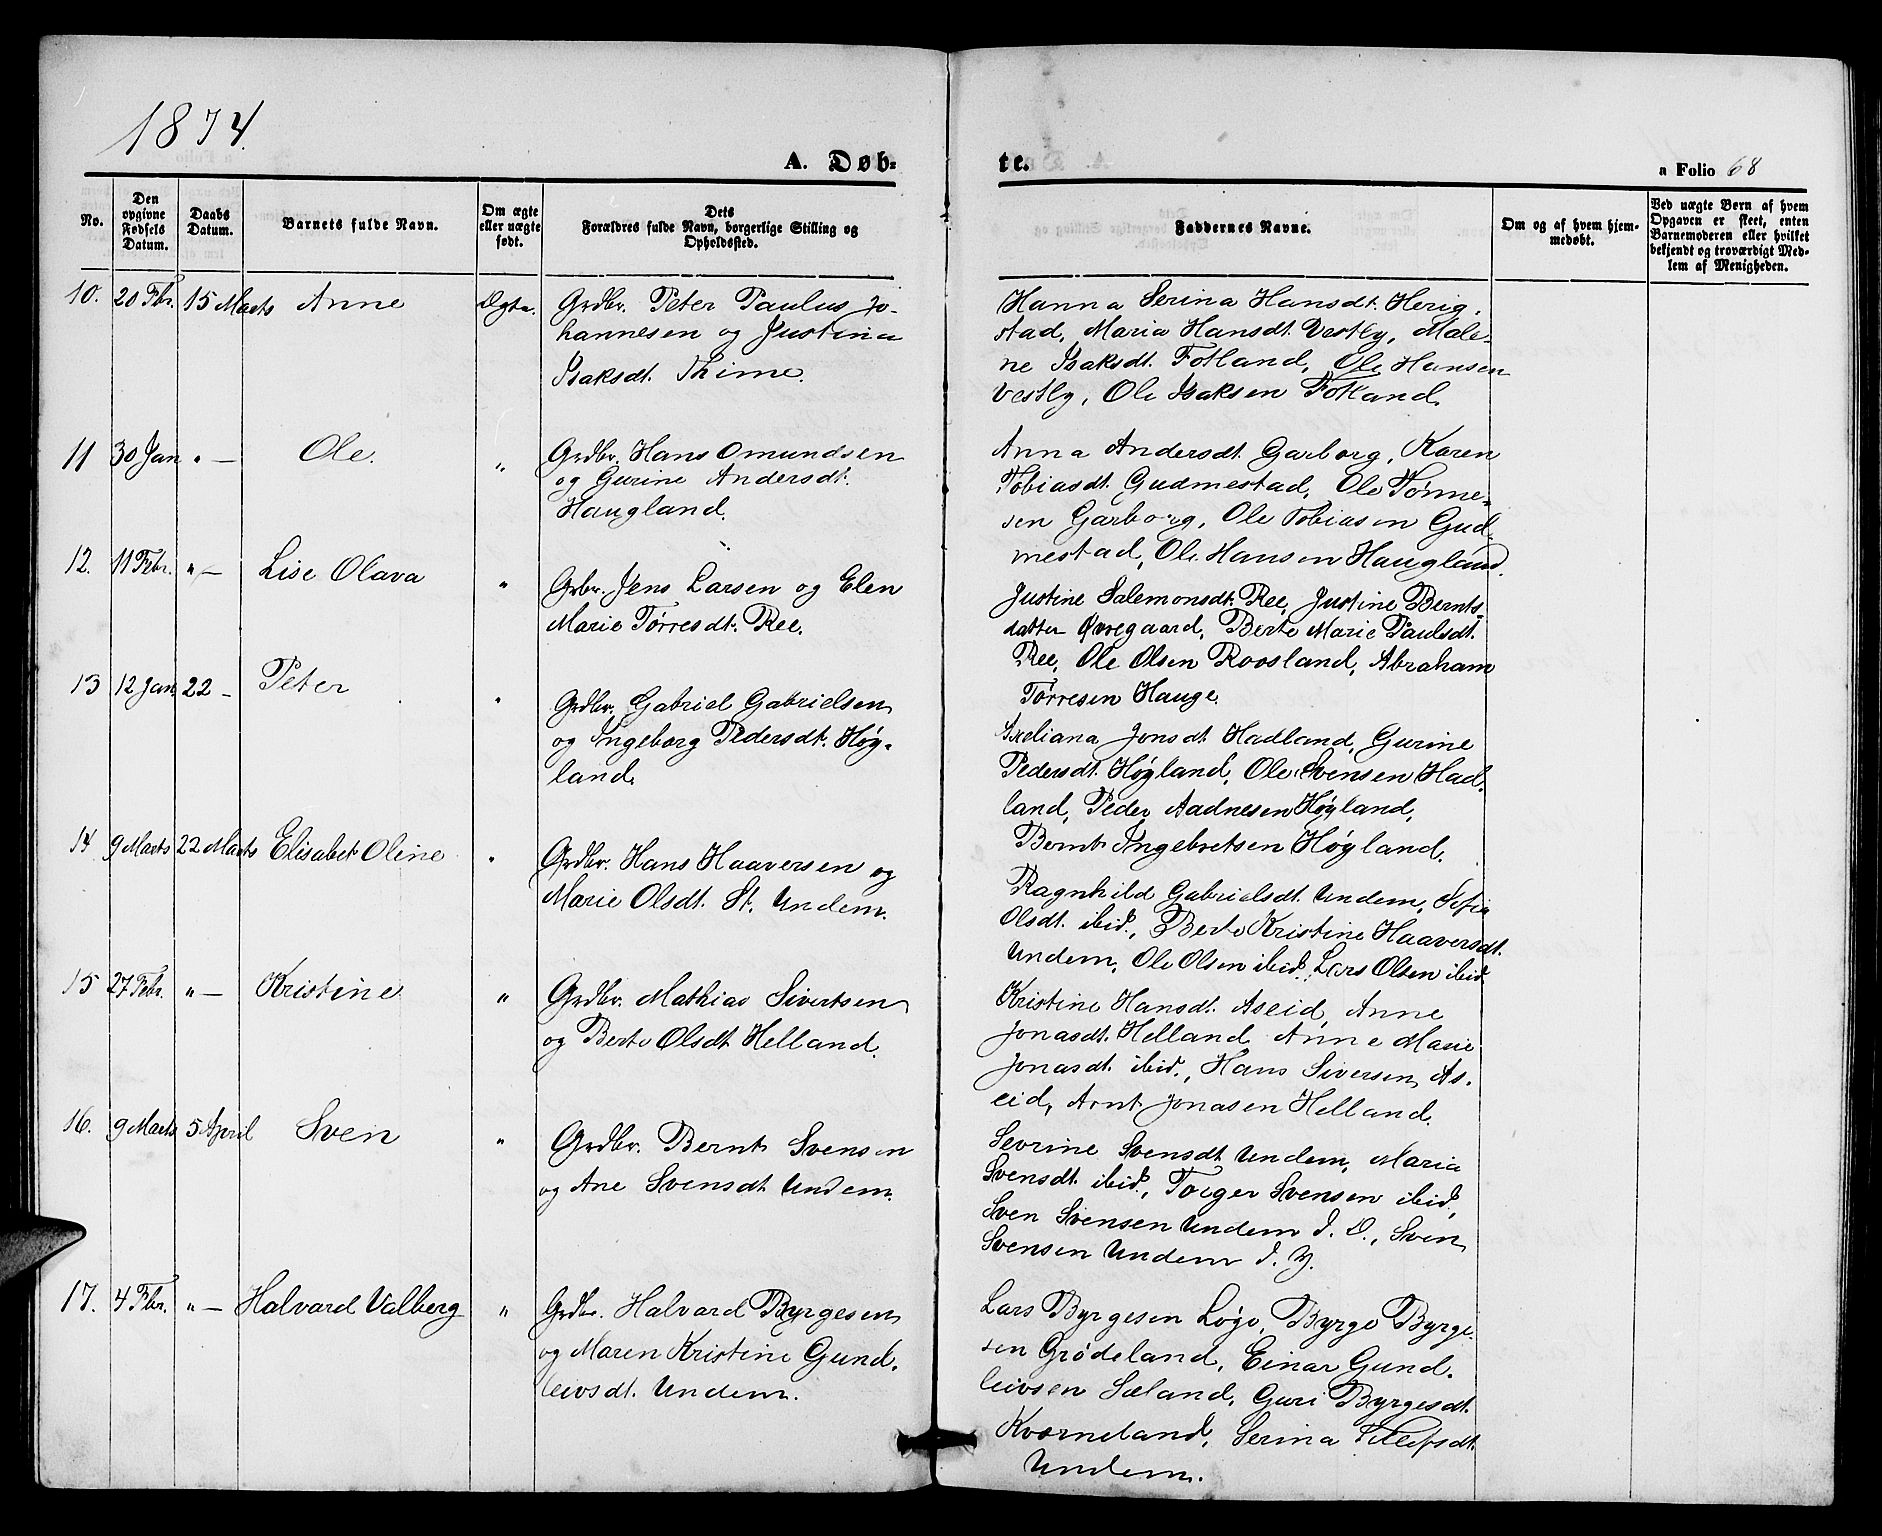 1874.
A. Døb-
te.
a Folio 68
No.
Den opgivne Fødsels Datum.
Daabs Datum.
Barnets fulde Navn.
Om ægte eller uægte født.
Dets Forældres fulde Navn, borgerlige Stilling og Opholdssted.
Faddernes Navne.
Om og af hvem hjemmedøbt.
Ved uægte Børn af hvem Opgaven er skeet, enten Barnemoderen eller hvilket bekjendt og troværdigt Medlem af Menigheden.
10. 20 Fbr. 15 Marts Anne Ægte.
Grdbr. Peter Paulus Jo-
hannesen og Justina
Isaksdt. Thime.
Hanna Serina Hansdt. Herig-
stad, Maria Hansdt. Vestly, Male-
ne Isaksdt. Fotland, Ole Hansen
Vestly, Ole Isaksen Fotland.
11 30 Jan " — Ole. "
Grdbr. Hans Omundsen
og Gurine Andersdt.
Haugland.
Anna Andersdt. Garborg, Karen
Tobiasdt. Gudmestad, Ole Tønne-
sen Garborg, Ole Tobiasen Gud-
mestad, Ole Hansen Haugland.
12. 11 Febr. " — Lise Olava "
Grbr. Jens Larsen og Elen
Marie Tørresdt. Ree.
Justine Salemonsdt. Ree, Justine Bernts-
datter Øvregaard, Berte Marie Paulsdt.
Ree, Ole Olsen Roosland, Abraham
Tørresen Hauge.
13 12 Jan. 22 - Peter "
Grdbr. Gabriel Gabrielsen
og Ingeborg Pedersdt. Høy-
land.
Jonsdt. Hadland, Gurine
Pedersdt. Høyland, Ole Svensen Had-
land, Peder Aadnesen Høyland,
Bernt Ingebretsen Høyland.
14 9 Marts 22 Marts Elisabet Oline "
Grdbr. Hans Haaversen og
Marie Olsdt. St. Undem.
Ragnhild Gabrielsdt. Undem, Sofia
Olsdt. ibid., Berte Kristine Haaversdt.
Undem, Ole Olsen ibid., Lars Olsen ibid.
15 27 Febr. " — Kristine "
Grdbr. Mathias Sivertsen
og Berte Olsdt. Helland.
Kristine Hansdt. Aseid, Anne
Jonasdt. Helland, Anne Marie
Jonasdt. ibid., Hans Siversen As-
eid, Arnt Jonasen Helland.
16. 9 Marts 5 April Sven "
Grdbr. Bernt Svensen
og Ane Svensdt. Undem.
Sevrine Svensdt. Undem, Maria
Svensdt. ibid., Torger Svensen ibid,
Sven Svensen Undem d. O., Sven
Svensen Undem d. Y.
17. 4 Fbr. " — Halvard Valberg "
Grdbr. Halvard Byrgesen
og Maren Kristine Gund-
leivsdt. Undem.
Lars Byrgesen Løge, Byrge Byrge-
sen Grødeland, Einar Gund-
leivsen Sæland, Guri Byrgesdt.
Kværneland, Serina
Undem.